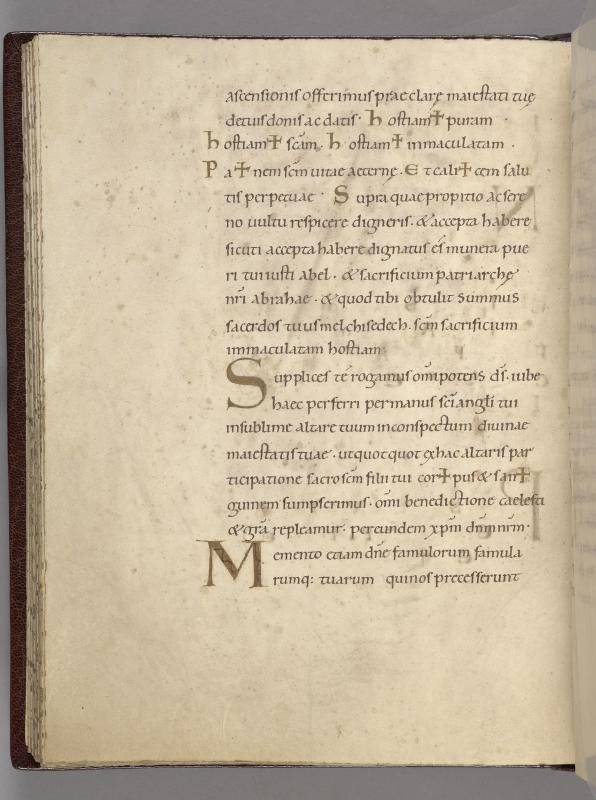 ascensionis offerimus praeclarę maiestati tuę
detuis donis ac datis · hostiam ✝ puram ·
hostiam ✝ scām · hostiam ✝ inmaculatam ·
Pa ✝ nem scm̄ vitae aeternę · Et cali ✝ cem salu
tis perpetuae · Supra quae propitio ac sere
no uultu respicere digneris · & accepta habere
sicuti accepta habere dignatus es̄ munera pue
ri tui iusti abel · & sacrificium patriarchę
nr̄i abrahae · & quod tibi obtulit summus
sacerdos tuus melchisedech · scm̄ sacrificium
immaculatam hostiam
Supplices te rogamus omp̄otens ds̄ · iube
haec perferri permanus sc̄i angl̄i tui
insublime altare tuum inconspectum divinae
maiestatis tuae · ut quot quot exhac altaris par
ticipatione sacrosc̄m filii tui cor ✝ pus & san ✝
guinem sumpserimus · om̄i benedictione caelesti
& gr̄a repleamur · per eundem xp̄m dn̄m nr̄m ·
Memento etiam dn̄e famulorum famula
rumq: tuarum quinos precesserunt